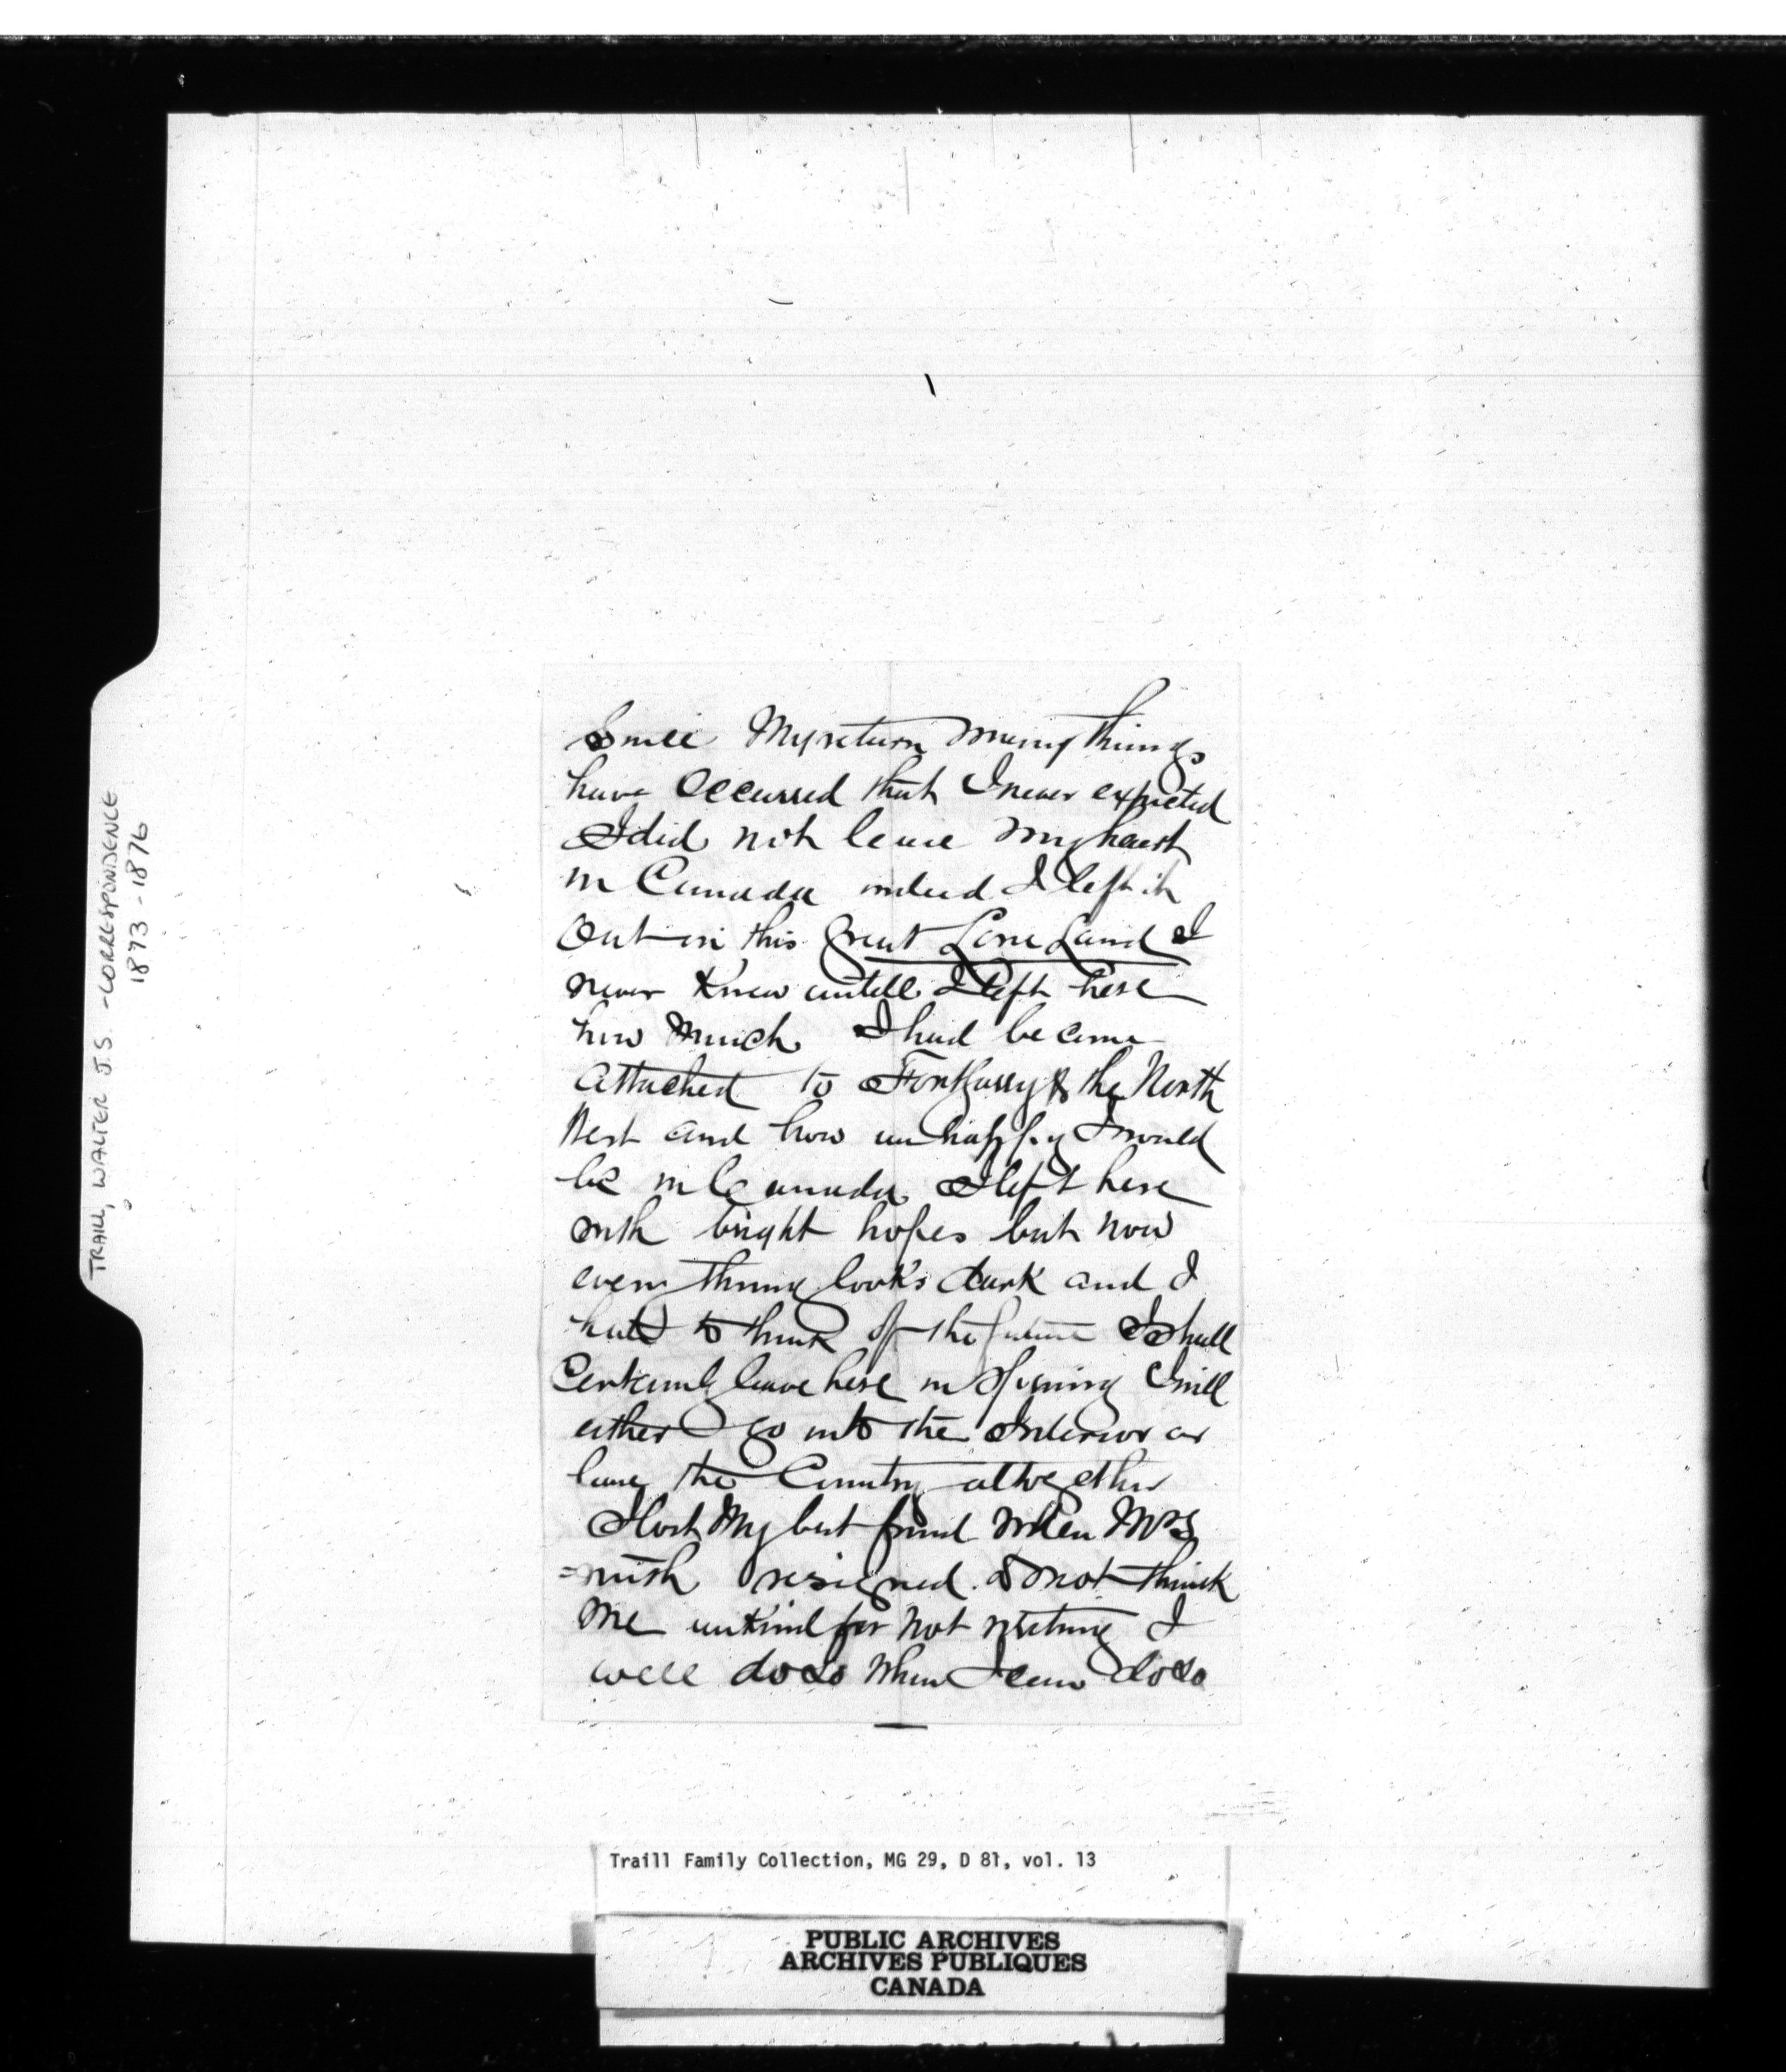 TRAILL, WALTER J.S. - CORRESPONDENCE
1873 - 1876
Since My return many things
have Occurred that I never expected
I did not leave my heart
in Canada indeed I left it
Out in this Great Lone Land I
never Knew untill I left here
how Much I had become
attached to Fort Garry & the North
West and how unhappy I would
be in Canada I left here
with bright hopes but now
every thing looks dark and I
hate to think of the future I Shall
Certainly leave here in Spring I will
either go into the Interior or
leave the Country altogether
I lost My best friend when Mr S
=mith resigned. Do not think
me unkind for not writing I
will do so When I can do so
Traill Family Collection, MG 29, D 81, vol. 13
PUBLIC ARCHIVES
ARCHIVES PUBLIQUES
CANADA